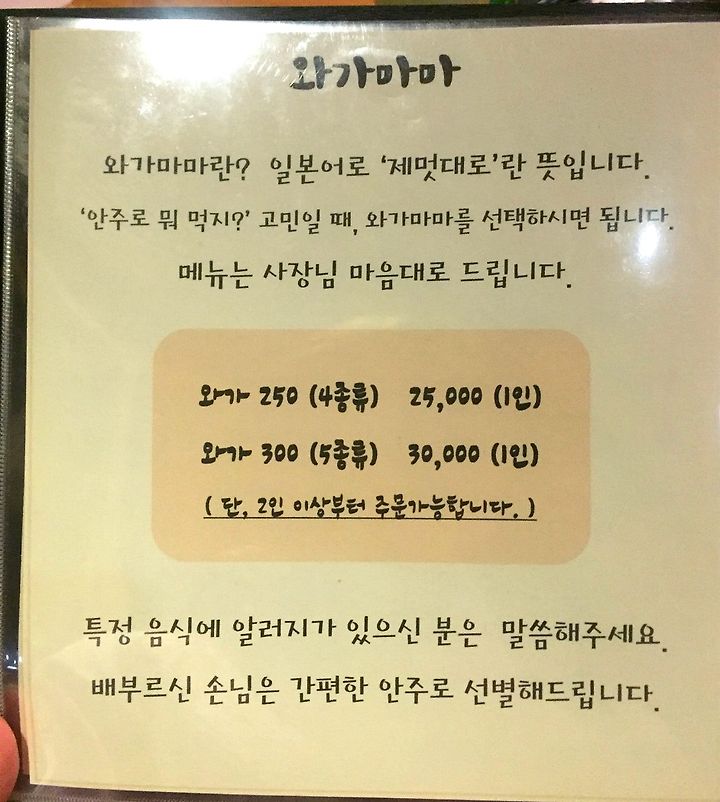 와가마마
와가마마란? 일본어로 '제멋대로'란 뜻입니다.
'안주로 뭐 먹지?' 고민일 때, 와가마마를 선택하시면 됩니다.
메뉴는 사장님 마음대로 드립니다.
와가 250 (4종류) 25,000 (1인)
와가 300 (5종류) 30,000 (1인)
( 단, 2인 이상부터 주문가능합니다. )
특정 음식에 알러지가 있으신 분은 말씀해주세요.
배부르신 손님은 간편한 안주로 선별해드립니다.